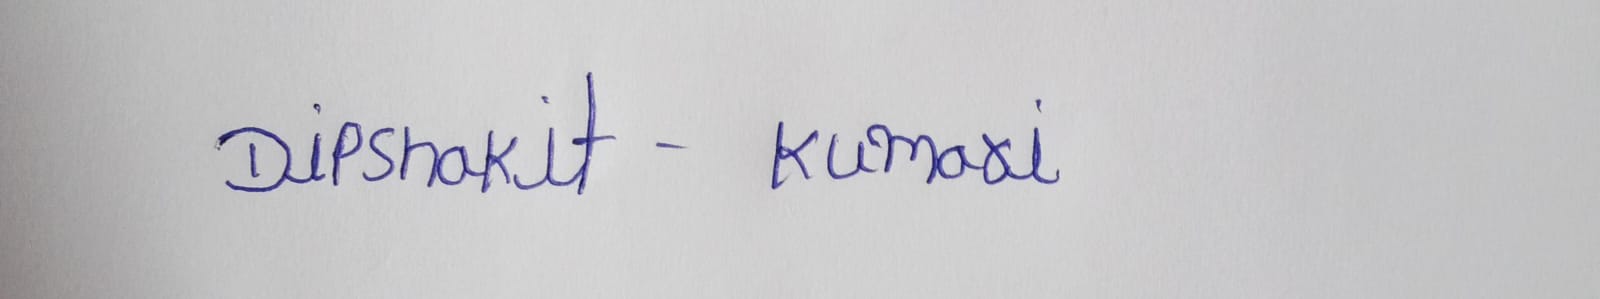 Dipshakit - Kumari